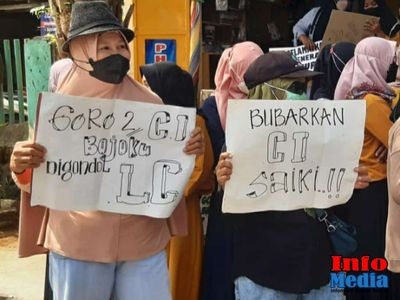 GORO2 C.I
Bojoku
Digondol LC
BUBARKAN
CI
Saiki..!!
Info
Media